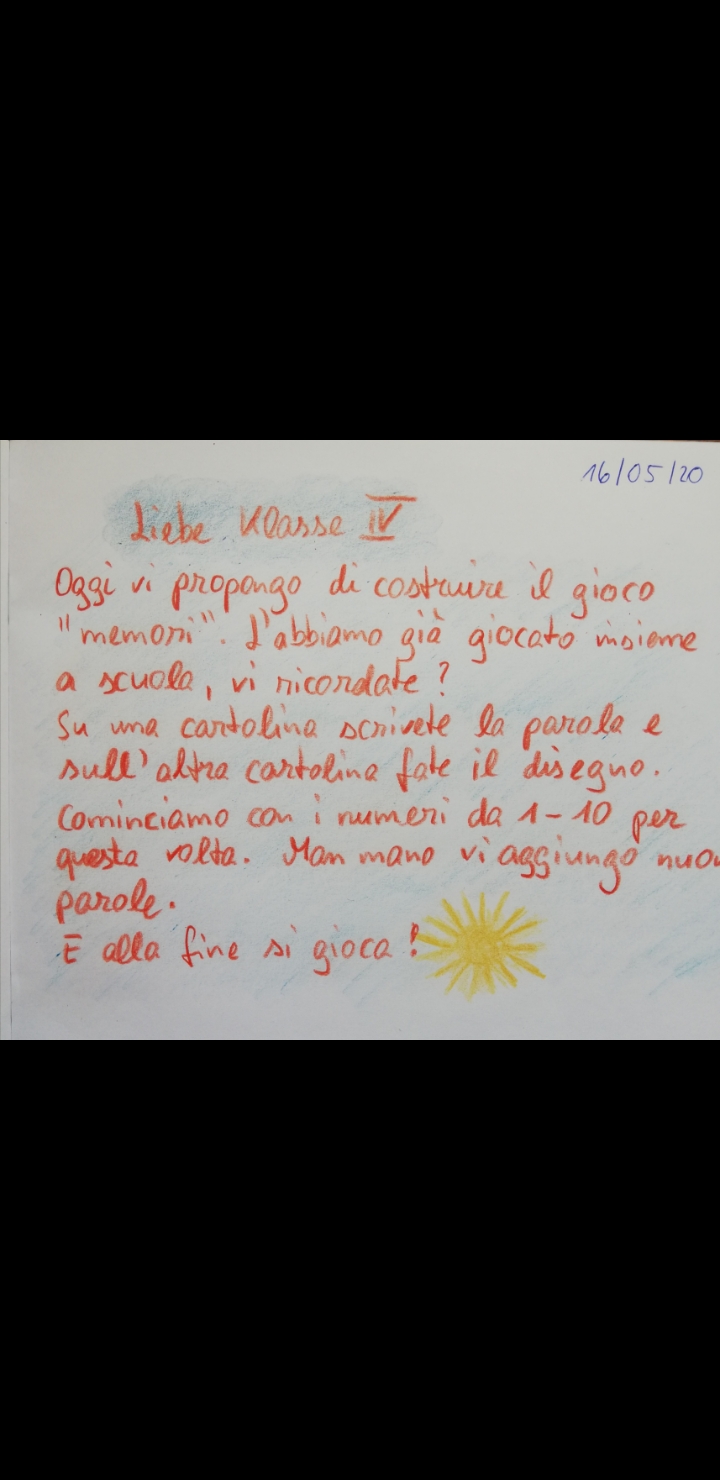 16/05/20
Liebe Klasse IV
Oggi vi propongo di costruire il gioco
"memori". L'abbiamo già giocato insieme
a scuola, vi ricordate?
Su una cartolina scrivete la parola e
sull'altra cartolina fate il disegno.
Cominciamo con i numeri da 1-10 per
questa volta. Man mano vi aggiungo nuov
parole.
E alla fine si gioca!